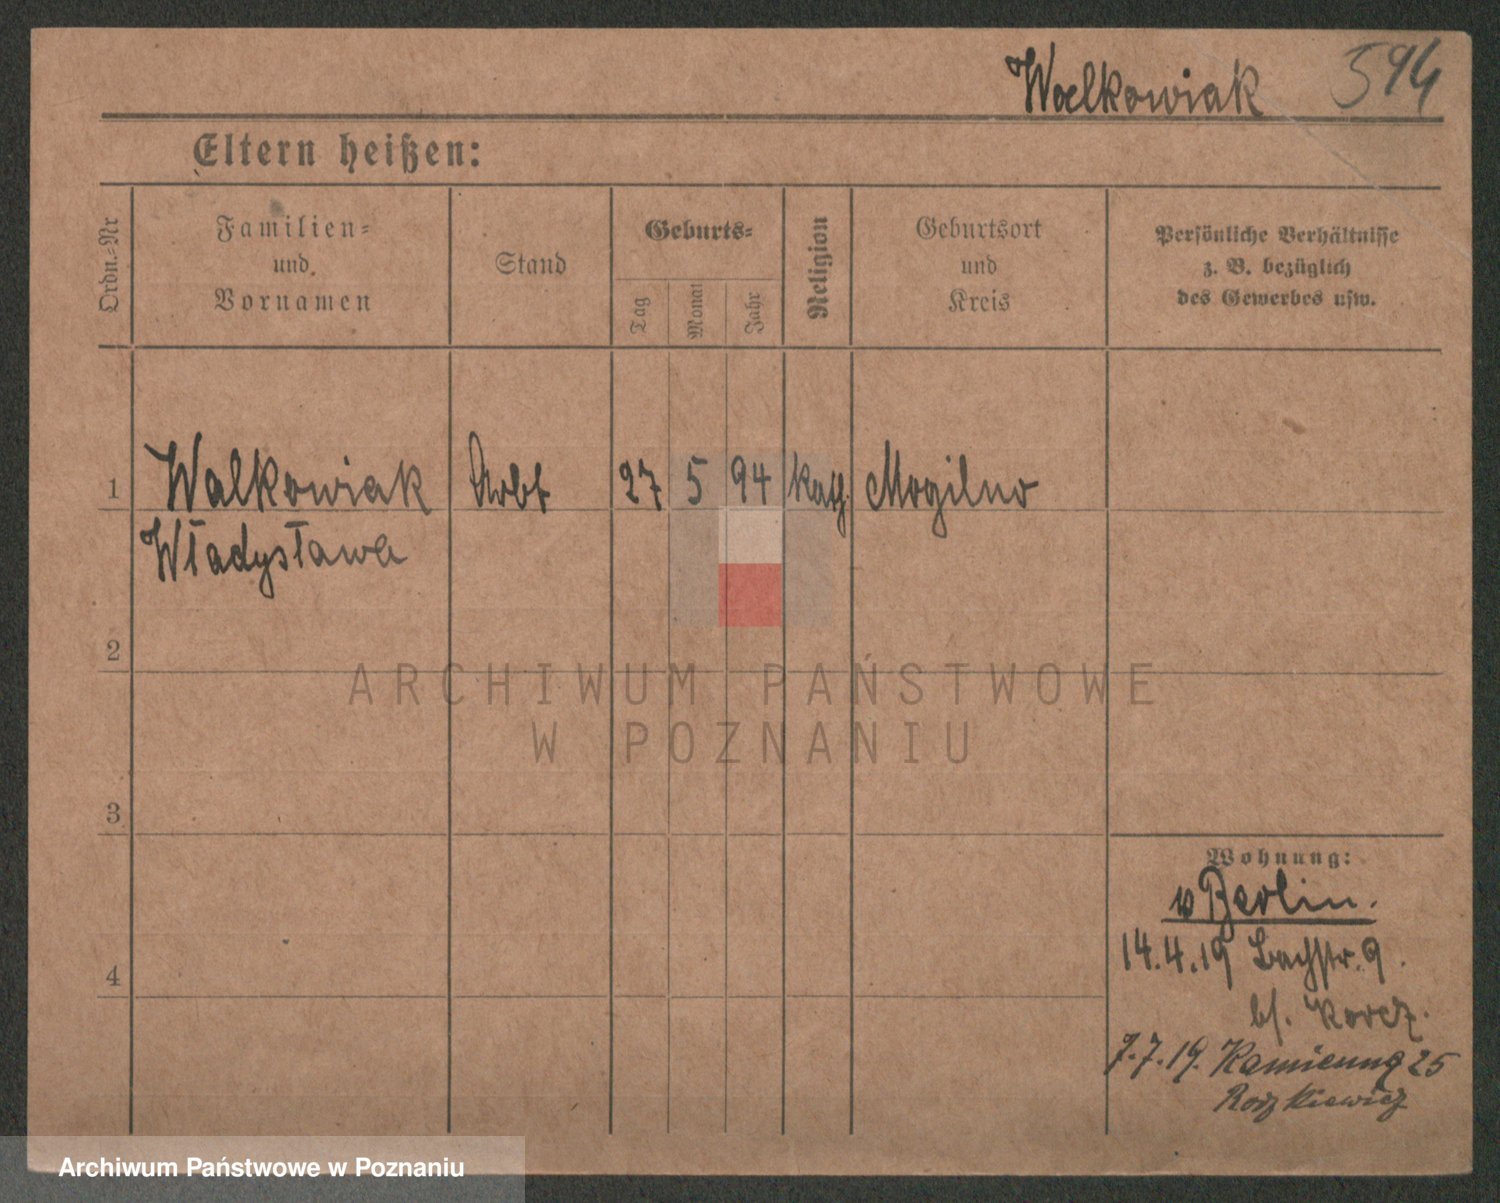 Walkowiak 594
Eltern heißen:
Ordn.-Nr
Familien-
und
Vornamen
Stand
Geburts-
Tag
Monat
Jahr
Religion
Geburtsort
und
Kreis
Persönliche Verhältnisse
z. B. bezüglich
des Gewerbes usw.
1 Walkowiak Arbt 27 5 94 kath. Mogilno
Władysława
2
ARCHIWUM PAŃSTWOWE
W POZNANIU
3
Wohnung:
Berlin.
4
14.4.19 Bachstr. 9.
b/. Korcz.
7.7.19. 25
Archiwum Państwowe w Poznaniu